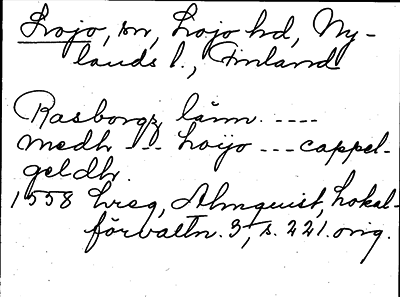 Lojo, sn, Lojo hd, Ny-
lands l., Finland
Rasborgz länn. ----
medh --- Loijo --- cappel-
geldh.
1558 Lreg, Almquist, Lokal-
förvaltn. 3, s. 221. orig.